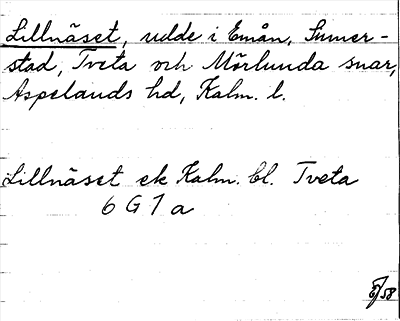 Lillnäset, udde i Emån, Sumer-
stad, Tveta och Mörlunda snar,
Aspelands hd, Kalm. l.
Lillnäset ek Kalm. bl. Tveta
6 G 7 a
E/58